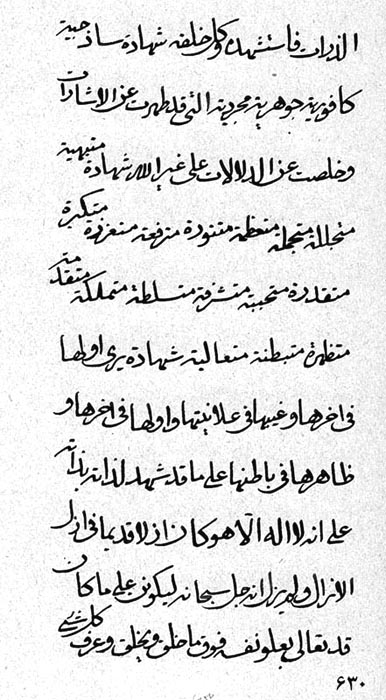 الذرات فاستشهده وكل خلقه شهادة ساذجية
كافورية جوهرية مجردية التي قد طهرت عن الاشارات
وخلصت عن الدلالات على غير الله شهادة متبهية
متجللة متجملة متعظمة متنورة مترفعة متعززة متكبرة
متقدرة متحببة متشرفة متسلطة متملكة
متظهرة متبطنة متعالية شهادة يرى اولها
في اخرها وغيبها في علانيتها واولها في اخرها و
ظاهرها في باطنها على ما قد شهد لذاته بذاته
على انه لا اله الا هو كان ازلا قديما في ازل
الازال ولم يزل انه جل سبحانه ليكونن على ما كان
قد تعالى بعلو نفسه فوق ما خلق ويخلق وعرف كل شيء
٦٣٠